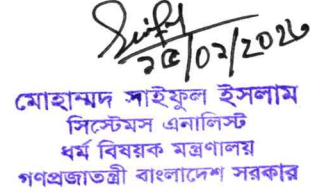 ২৫/০২/২০২৬
মোহাম্মদ সাইফুল ইসলাম
সিস্টেমস এনালিস্ট
ধর্ম বিষয়ক মন্ত্রণালয়
গণপ্রজাতন্ত্রী বাংলাদেশ সরকার